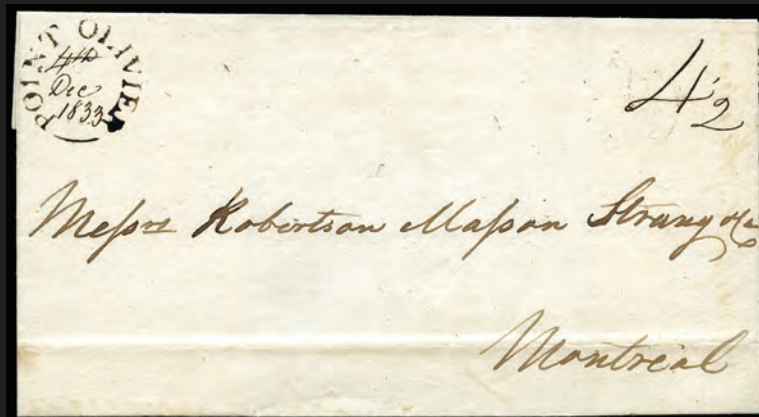 POINT OLIVIER
4th
Dec
1833
4½
Messrs Robertson Masson Strang &Co
Montreal